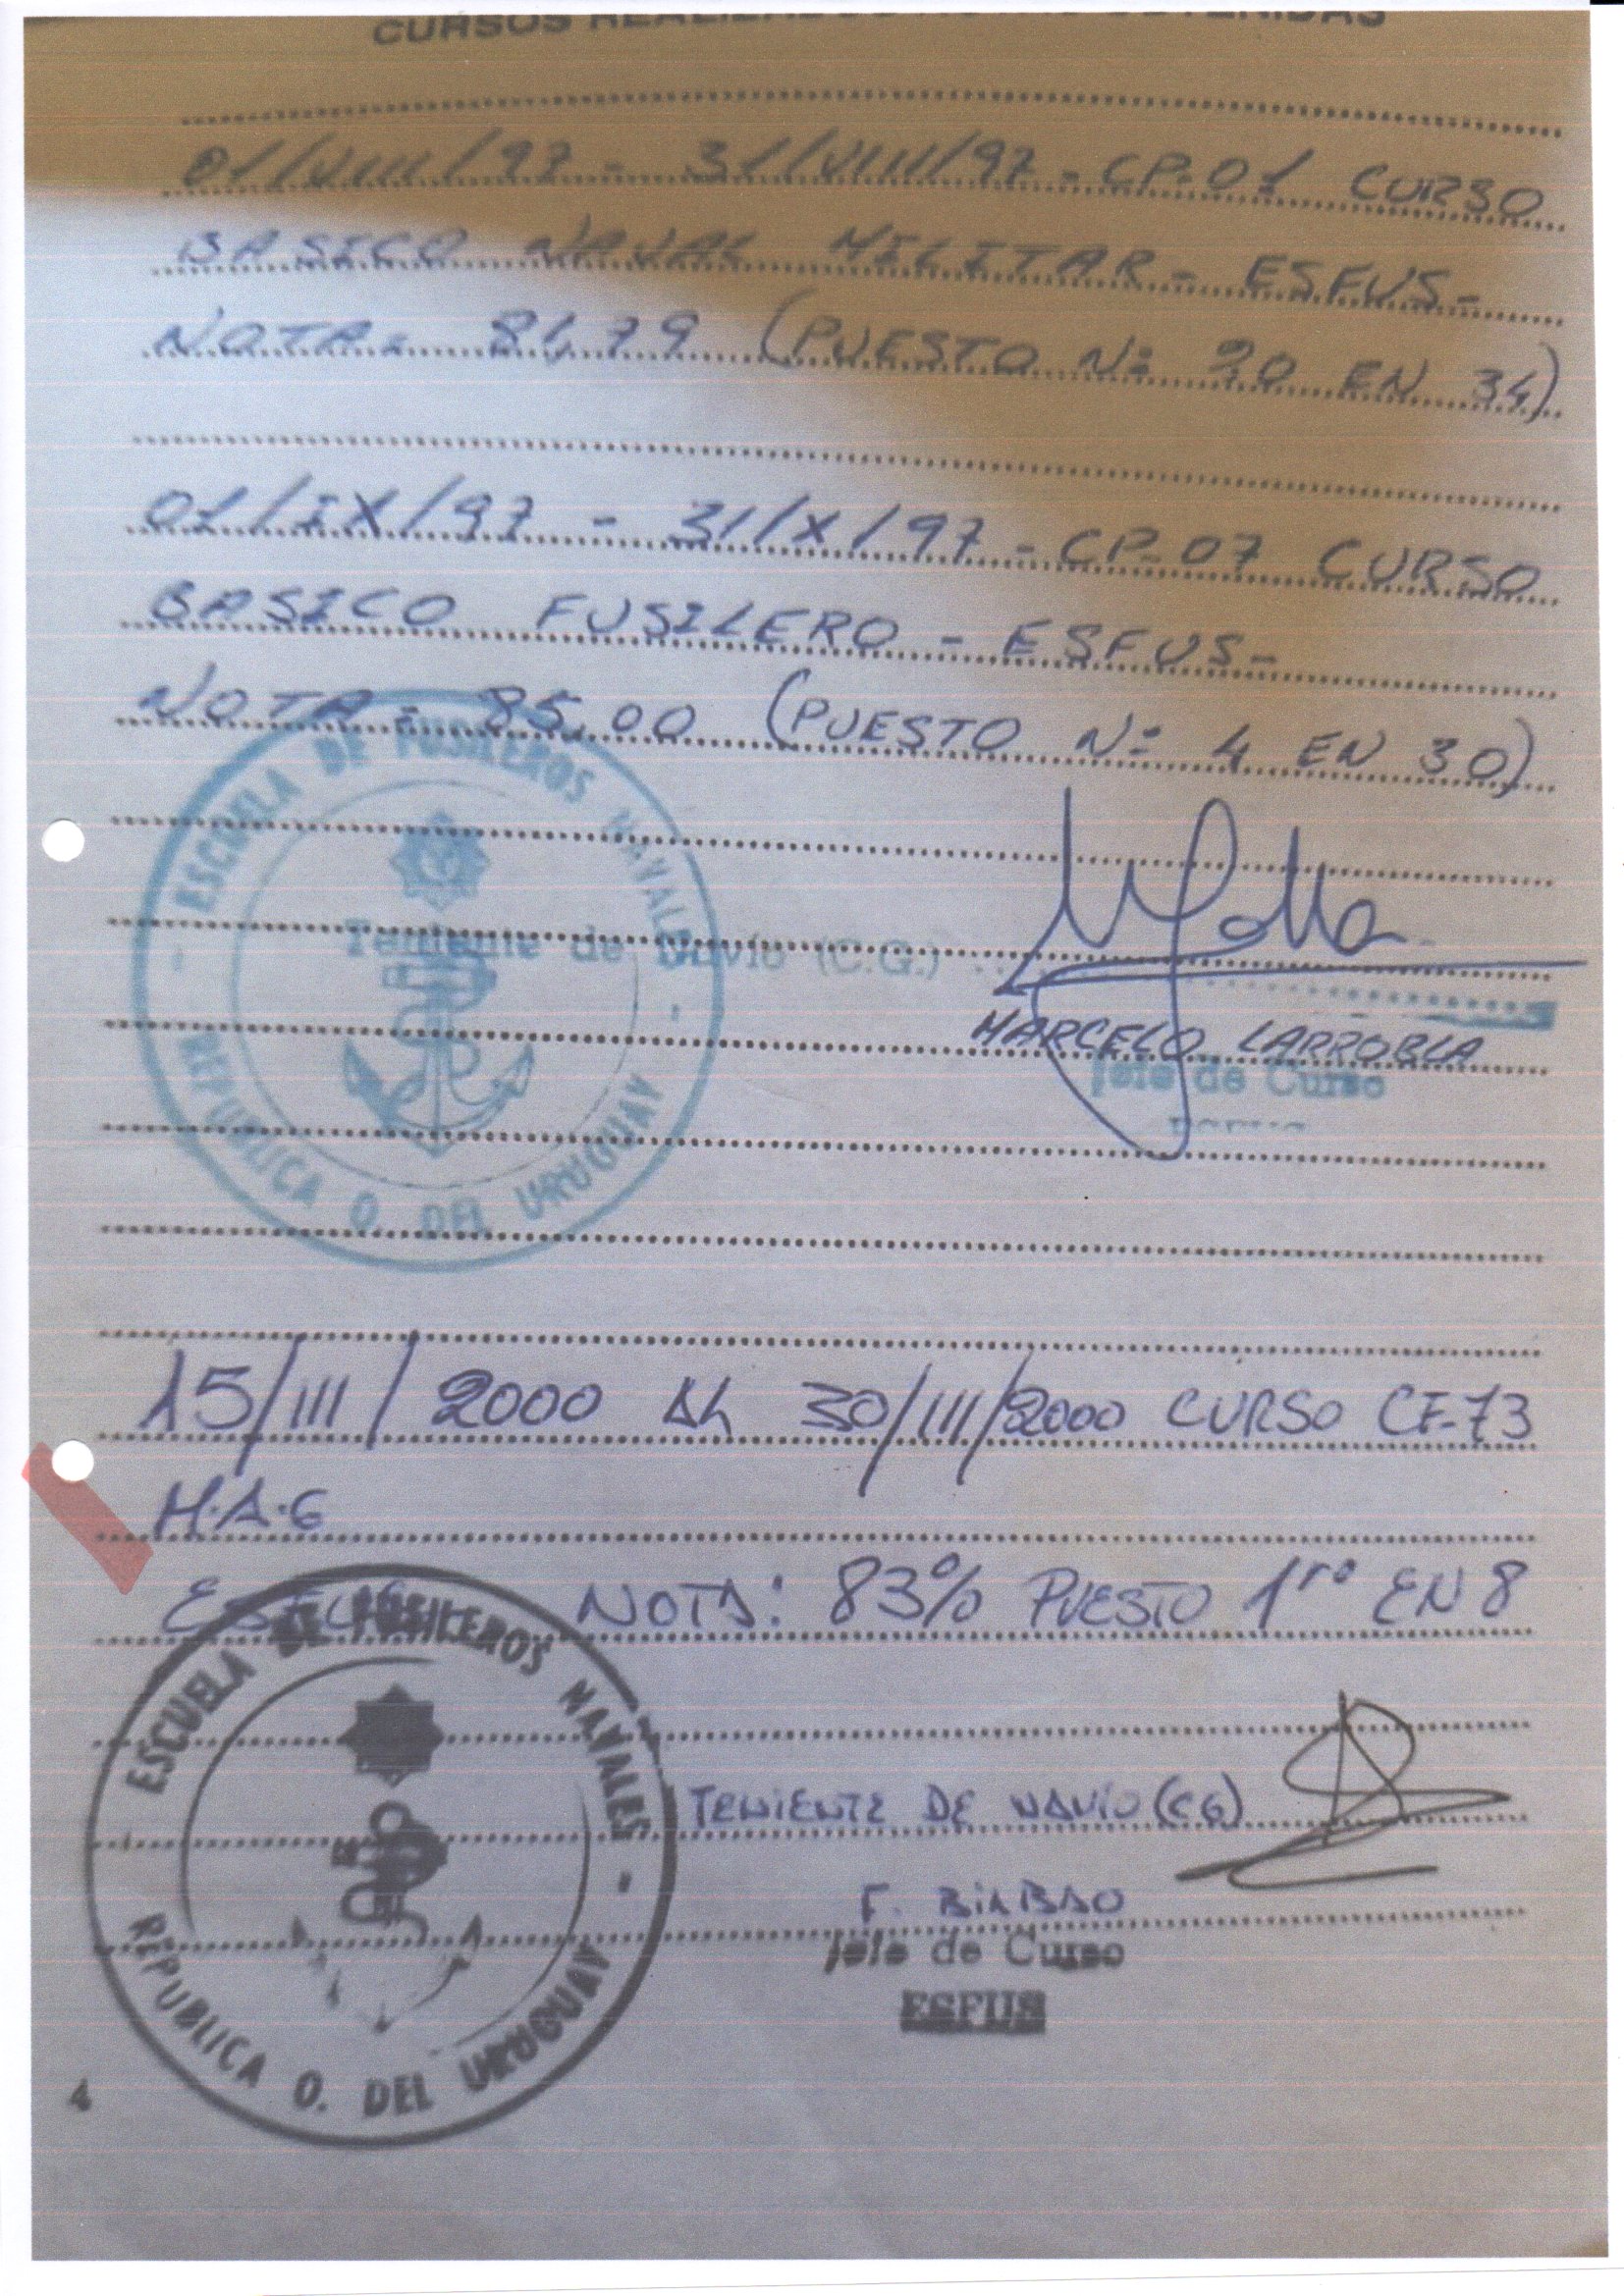 CURSOS REALIZADOS
01/VIII/97 - 31/VIII/97 - CP-01 CURSO
BASICO NAVAL MILITAR - ESFUS -
NOTA = 81,79 (PUESTO Nº 20 EN 34)
01/IX/97 - 31/X/97 - CP-07 CURSO
BASICO FUSILERO - ESFUS -
NOTA = 85,00 (PUESTO Nº 4 EN 30)
- ESCUELA DE FUSILEROS NAVALES -
REPUBLICA O. DEL URUGUAY
Teniente de Navío (C.G.)
MARCELO LARROBLA
Jefe de Curso
15/III/2000 AL 30/III/2000 CURSO CF-73
M.A.G
ESFUS NOTA: 83% PUESTO 1ro EN 8
ESCUELA DE FUSILEROS NAVALES -
REPUBLICA O. DEL URUGUAY
TENIENTE DE NAVIO (CG)
F. BILBAO
Jefe de Curso
ESFUS
4